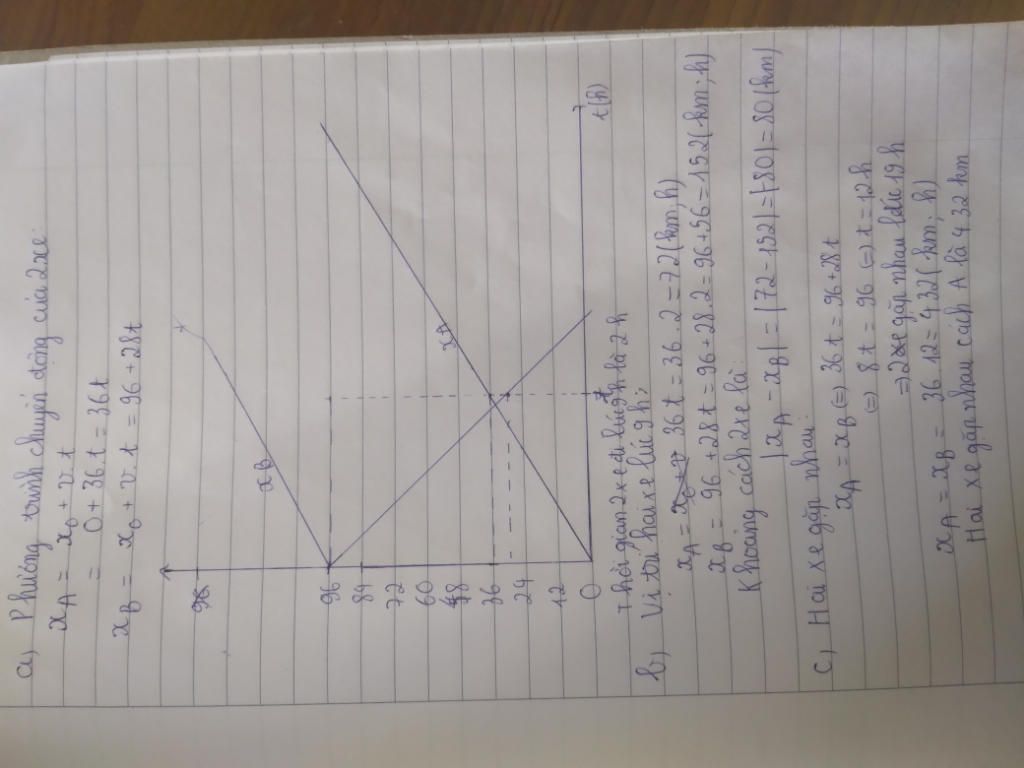 a) Phương trình chuyển động của 2 xe:
xA = x0 + v.t
= 0 + 36t = 36t
xB = x0 + v.t = 96 + 28t
96
xB
96
84
72
xA
60
48
36
24
12
0
t(h)
Thời gian 2 xe đi lúc 9h là 2h
b) Vị trí hai xe lúc 9h:
xA = 36t = 36.2 = 72 (km;h)
xB = 96 + 28t = 96 + 28.2 = 96 + 56 = 152 (km;h)
Khoảng cách 2 xe là:
|xA - xB| = |72 - 152| = |-80| = 80 (km)
c) Hai xe gặp nhau:
xA = xB (=) 36t = 96 + 28t
(=) 8t = 96 (=) t = 12h
=) 2 xe gặp nhau lúc 19h
xA = xB = 36.12 = 432 (km; h)
Hai xe gặp nhau cách A là 432 km